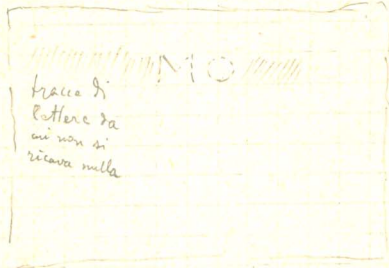 MO
tracce di
lettere da
cui non si
ricava nulla